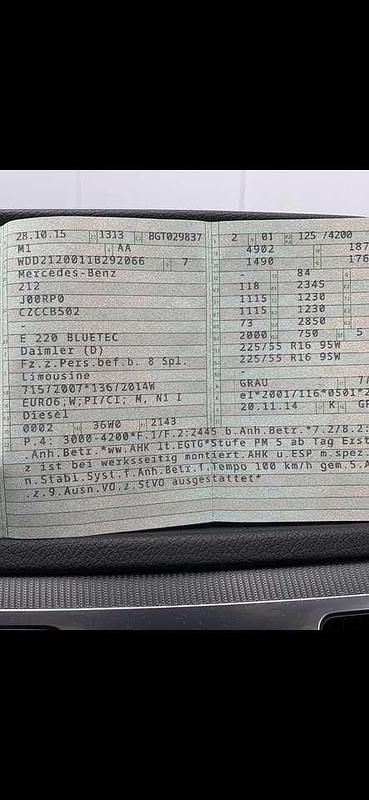 28.10.15 1313 BGT029837
M1 AA
WDD2120011B292066 7
Mercedes-Benz
212
J00RP0
CZCCB502
-
E 220 BLUETEC
Daimler (D)
Fz.z.Pers.bef.b. 8 Spl.
Limousine
715/2007*136/2014W
EURO6;W;PI/CI; M, N1 I
Diesel
0002 36W0 2143
2 01 125 /4200
4902 187
1490 176
- 84
118 2345
1115 1230
1115 1230
73 2850
2000 750 5
225/55 R16 95W
225/55 R16 95W
-
-
GRAU 7/
e1*2001/116*0501*2
20.11.14 K
P.4: 3000-4200*F.1/F.2:2445 b.Anh.Betr.*7.2/8.2:
.Anh.Betr.*ww.AHK lt.EGTG*Stufe PM 5 ab Tag Erst
z ist bei werksseitig montiert.AHK u.ESP m.spez
n.Stabi.Syst.f.Anh.Betr.f.Tempo 100 km/h gem.5.A
.z.9.Ausn.VO.z.StVO ausgestattet*